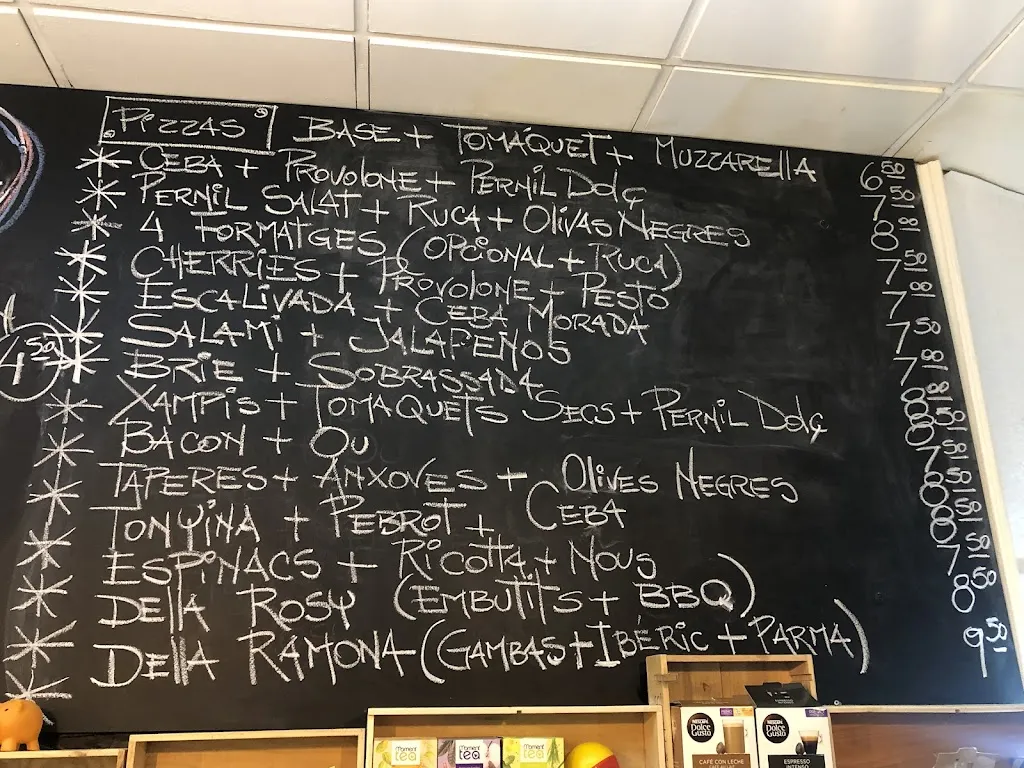 PIZZAS BASE + TOMÀQUET + MUZZARELLA 6⁵⁰
CEBA + PROVOLONE + PERNIL DOLÇ 7⁵⁰
PERNIL SALAT + RUCA + OLIVAS NEGRES 8
4 FORMATGES (OPCIONAL + RUCA) 7⁵⁰
CHERRIES + PROVOLONE + PESTO 7
ESCALIVADA + CEBA MORADA 7⁵⁰
SALAMI + JALAPEÑOS 7
BRIE + SOBRASSADA 8
XAMPIS + TOMAQUETS SECS + PERNIL DOLÇ 8⁵⁰
BACON + OU 7⁵⁰
TÀPERES + ANXOVES + OLIVES NEGRES 8⁵⁰
TONYINA + PEBROT + CEBA 8⁵⁰
ESPINACS + RICOTTA + NOUS 7⁵⁰
DELLA ROSY (EMBUTITS + BBQ) 8⁵⁰
DELLA RAMONA (GAMBAS + IBÉRIC + PARMA) 9⁵⁰
4⁵⁰
moment tea
moment tea
moment tea
NESCAFÉ Dolce Gusto
CAFÉ CON LECHE
NESCAFÉ Dolce Gusto
ESPRESSO INTENSO